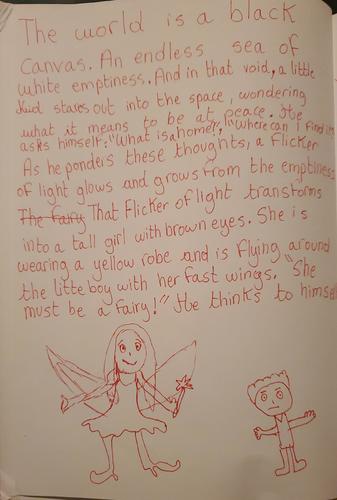 The world is a black
canvas. An endless sea of
white emptiness. And in that void, a little
kid stares out into the space, wondering
what it means to be at peace. He
asks himself: "What is a home?", "Where can I find it
As he ponders these thoughts, a flicker
of light glows and grows from the emptiness
The fairy That Flicker of light transforms
into a tall girl with brown eyes. She is
wearing a yellow robe and is flying around
the little boy with her fast wings. "She
must be a fairy!" He thinks to himself